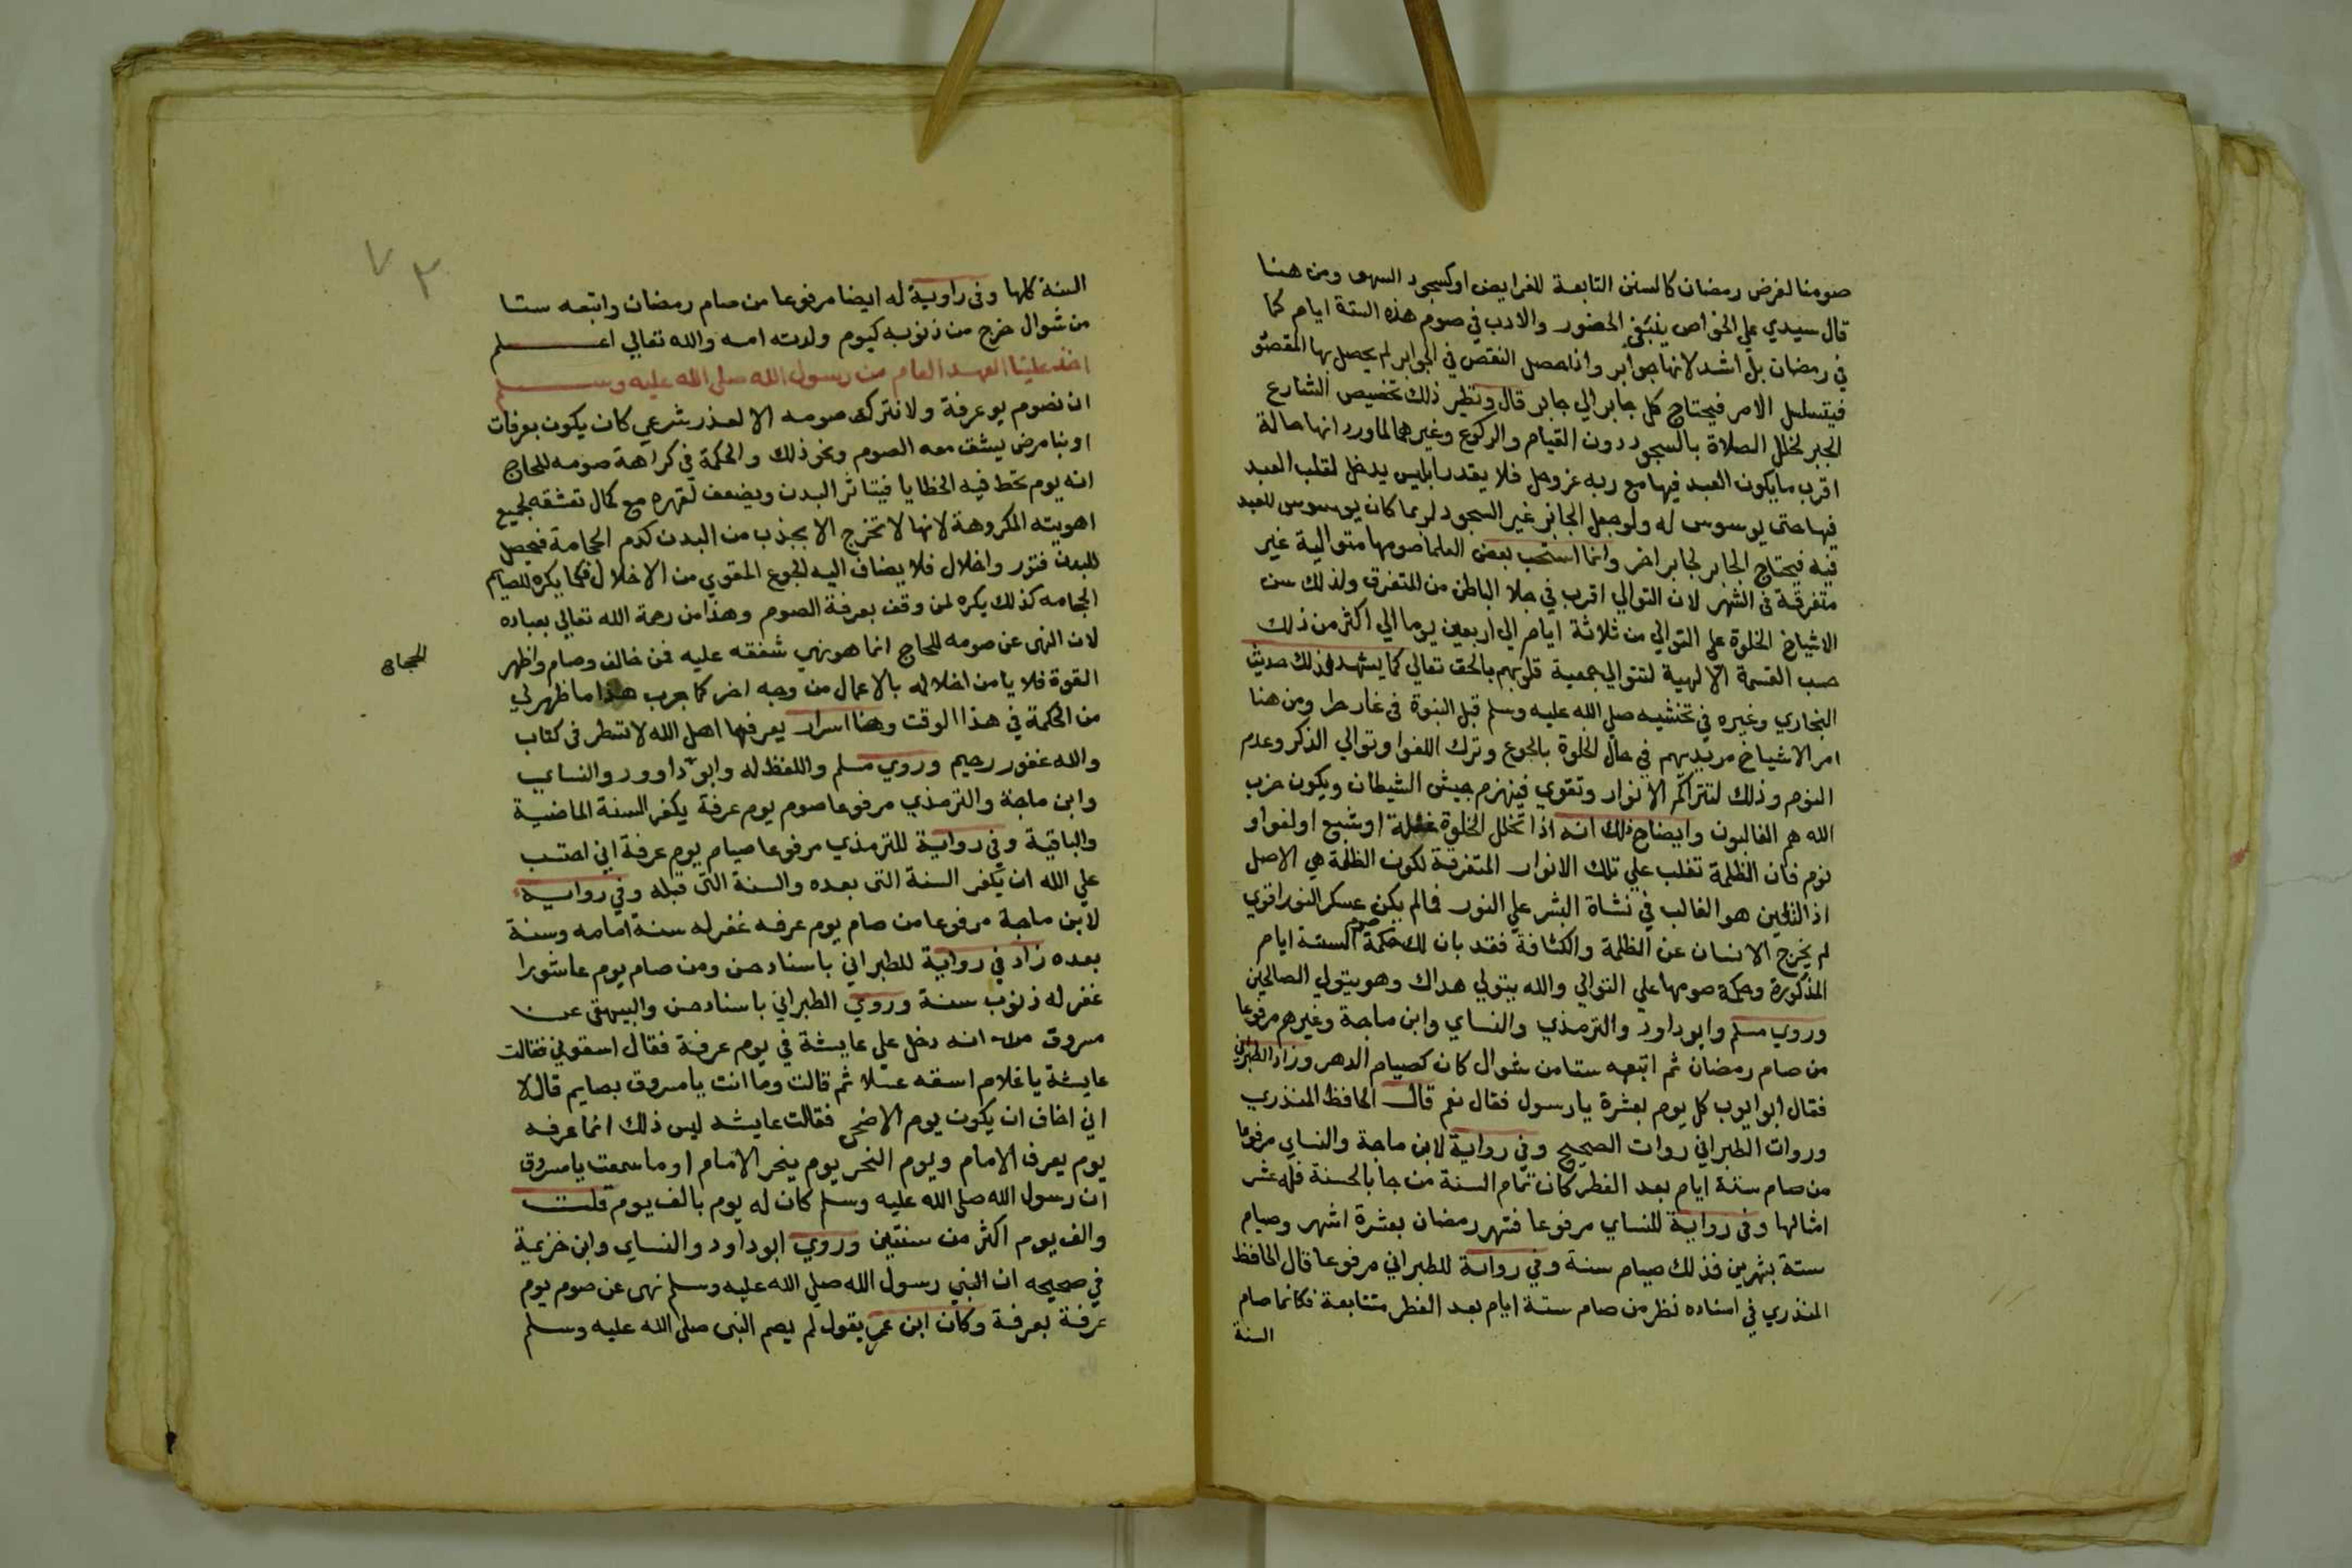 صومنا لفرض رمضان كالسنن التابعة للفرايض او كسجود السهو ومن هنا
قال سيدي علي الخواص ينبغي الحضور والادب في صوم هذه الستة ايام كما
في رمضان بل اشد لانها جوابر واذا حصل النقص في الجوابر لم يحصل بها المقصود
فيتسلسل الامر فيحتاج كل جابر الي جابر قال ونظير ذلك تخصيص الشارع
الجبر لخلل الصلاة بالسجود دون القيام والركوع وغيرهما لما ورد انها حالة
اقرب ما يكون العبد فيها مع ربه عز وجل فلا يقدر ابليس يدخل لقلب العبد
فيها حتى يوسوس له ولو جعل الجابر غير السجود لربما كان يوسوس للعبد
فيه فيحتاج الجابر لجابر اخر وانما استحب بعض العلما صومها متوالية غير
متفرقة في الشهر لان التوالي اقرب في جلا الباطن من المتفرق ولذلك سن
الاشياخ الخلوة علي التوالي من ثلاثة ايام الي اربعين يوما الي اكثر من ذلك
حسب القسمة الالهية لتتوالي جمعية قلوبهم بالحق تعالي كما يشهد لذلك حديث
البخاري وغيره في تحنثه صلي الله عليه وسلم قبل النبوة في غار حرا ومن هنا
امر الاشياخ مريديهم في حال الخلوة بالجوع وترك اللغوا وتوالي الذكر وعدم
النوم وذلك لتتراكم الانوار وتقوي فينهزم جيش الشيطان ويكون حزب
الله هم الغالبون وايضاح ذلك انه اذا تخلل الخلوة غفلة او شبع او لغوا او
نوم فان الظلمة تغلب علي تلك الانوار المتفرقة لكون الظلمة هي الاصل
اذ الطين هو الغالب في نشاة البشر علي النور فما لم يكن عسكر النور اقوي
لم يخرج الانسان عن الظلمة والكثافة فقد بان لك حكمة صوم الستة ايام
المذكورة وحكمة صومها علي التوالي والله يتولي هداك وهو يتولي الصالحين
وروي مسلم وابو داود والترمذي والنساي وابن ماجة وغيرهم مرفوعا
من صام رمضان ثم اتبعه ستا من شوال كان كصيام الدهر وزاد الطبراني
فقال ابو ايوب كل يوم بعشرة يا رسول فقال نعم قال الحافظ المنذري
وروات الطبراني روات الصحيح وفي رواية لابن ماجة والنساي مرفوعا
من صام ستة ايام بعد الفطر كان تمام السنة من جا بالحسنة فله عشر
امثالها وفي رواية للنساي مرفوعا فشهر رمضان بعشرة اشهر وصيام
ستة بشهرين فذلك صيام سنة وفي رواية للطبراني مرفوعا قال الحافظ
المنذري في اسناده نظر من صام ستة ايام بعد الفطر متتابعة فكانما صام
السنة
٧٣
السنة كلها وفي راوية له ايضا مرفوعا من صام رمضان واتبعه ستا
من شوال خرج من ذنوبه كيوم ولدته امه والله تعالي اعلم
اخذ علينا العهد العام من رسول الله صلى الله عليه وسلم
ان نصوم يو عرفة ولا نترك صومه الا لعذر شرعي كان يكون بعرفات
او بنا مرض يشق معه الصوم ونحو ذلك والحكمة في كراهة صومه للحاج
انه يوم تحط فيه الخطايا فيتاثر البدن ويضعف لقهره مع كمال تعشقه لجميع
اهويته المكروهة لانها لا تخرج الا بجذب من البدن كدم الحجامة فيحصل
للبدن فتور واخلال فلا يضاف اليه الجوع المقوي من الاخلال فكما يكره للصايم
الحجامه كذلك يكره لمن وقف بعرفة الصوم وهذا من رحمة الله تعالي بعباده
لان النهى عن صومه للحاج انما هو نهي شفقه عليه فمن خالف وصام واظهر
القوة فلا يامن اخلاله بالاعمال من وجه اخر كما جرب هذا ما ظهر لي
من الحكمة في هذا الوقت وهنا اسرار يعرفها اهل الله لا تسطر في كتاب
والله غفور رحيم وروي مسلم واللفظ له وابو داوور والنساي
وابن ماجة والترمذي مرفوعا صوم يوم عرفة يكفر السنة الماضية
والباقية وفي رواية للترمذي مرفوعا صيام يوم عرفة اني احتسب
علي الله ان يكفر السنة التى بعده والسنة التي قبله وفي رواية
لابن ماجة مرفوعا من صام يوم عرفه غفر له سنة امامه وسنة
بعده زاد في رواية للطبراني باسناد حسن ومن صام يوم عاشورا
غفر له ذنوب سنة وروي الطبراني باسناد حسن والبيهقي عن
مسروق انه دخل علي عايشة في يوم عرفة فقال اسقوني فقالت
عايشة يا غلام اسقه عسلا ثم قالت وما انت يا مسروق بصايم قال لا
اني اخاف ان يكون يوم الاضحى فقالت عايشه ليس ذلك انما عرفه
يوم يعرف الامام ويوم النحر يوم ينحر الامام او ما سمعت يا مسروق
ان رسول الله صلى الله عليه وسلم كان له يوم بالف يوم قلت
والف يوم اكثر من سنتين وروي ابو داود والنساي وابن خزيمة
في صحيحه ان النبي رسول الله صلي الله عليه وسلم نهى عن صوم يوم
عرفة بعرفة وكان ابن عمر يقول لم يصم النبى صلى الله عليه وسلم